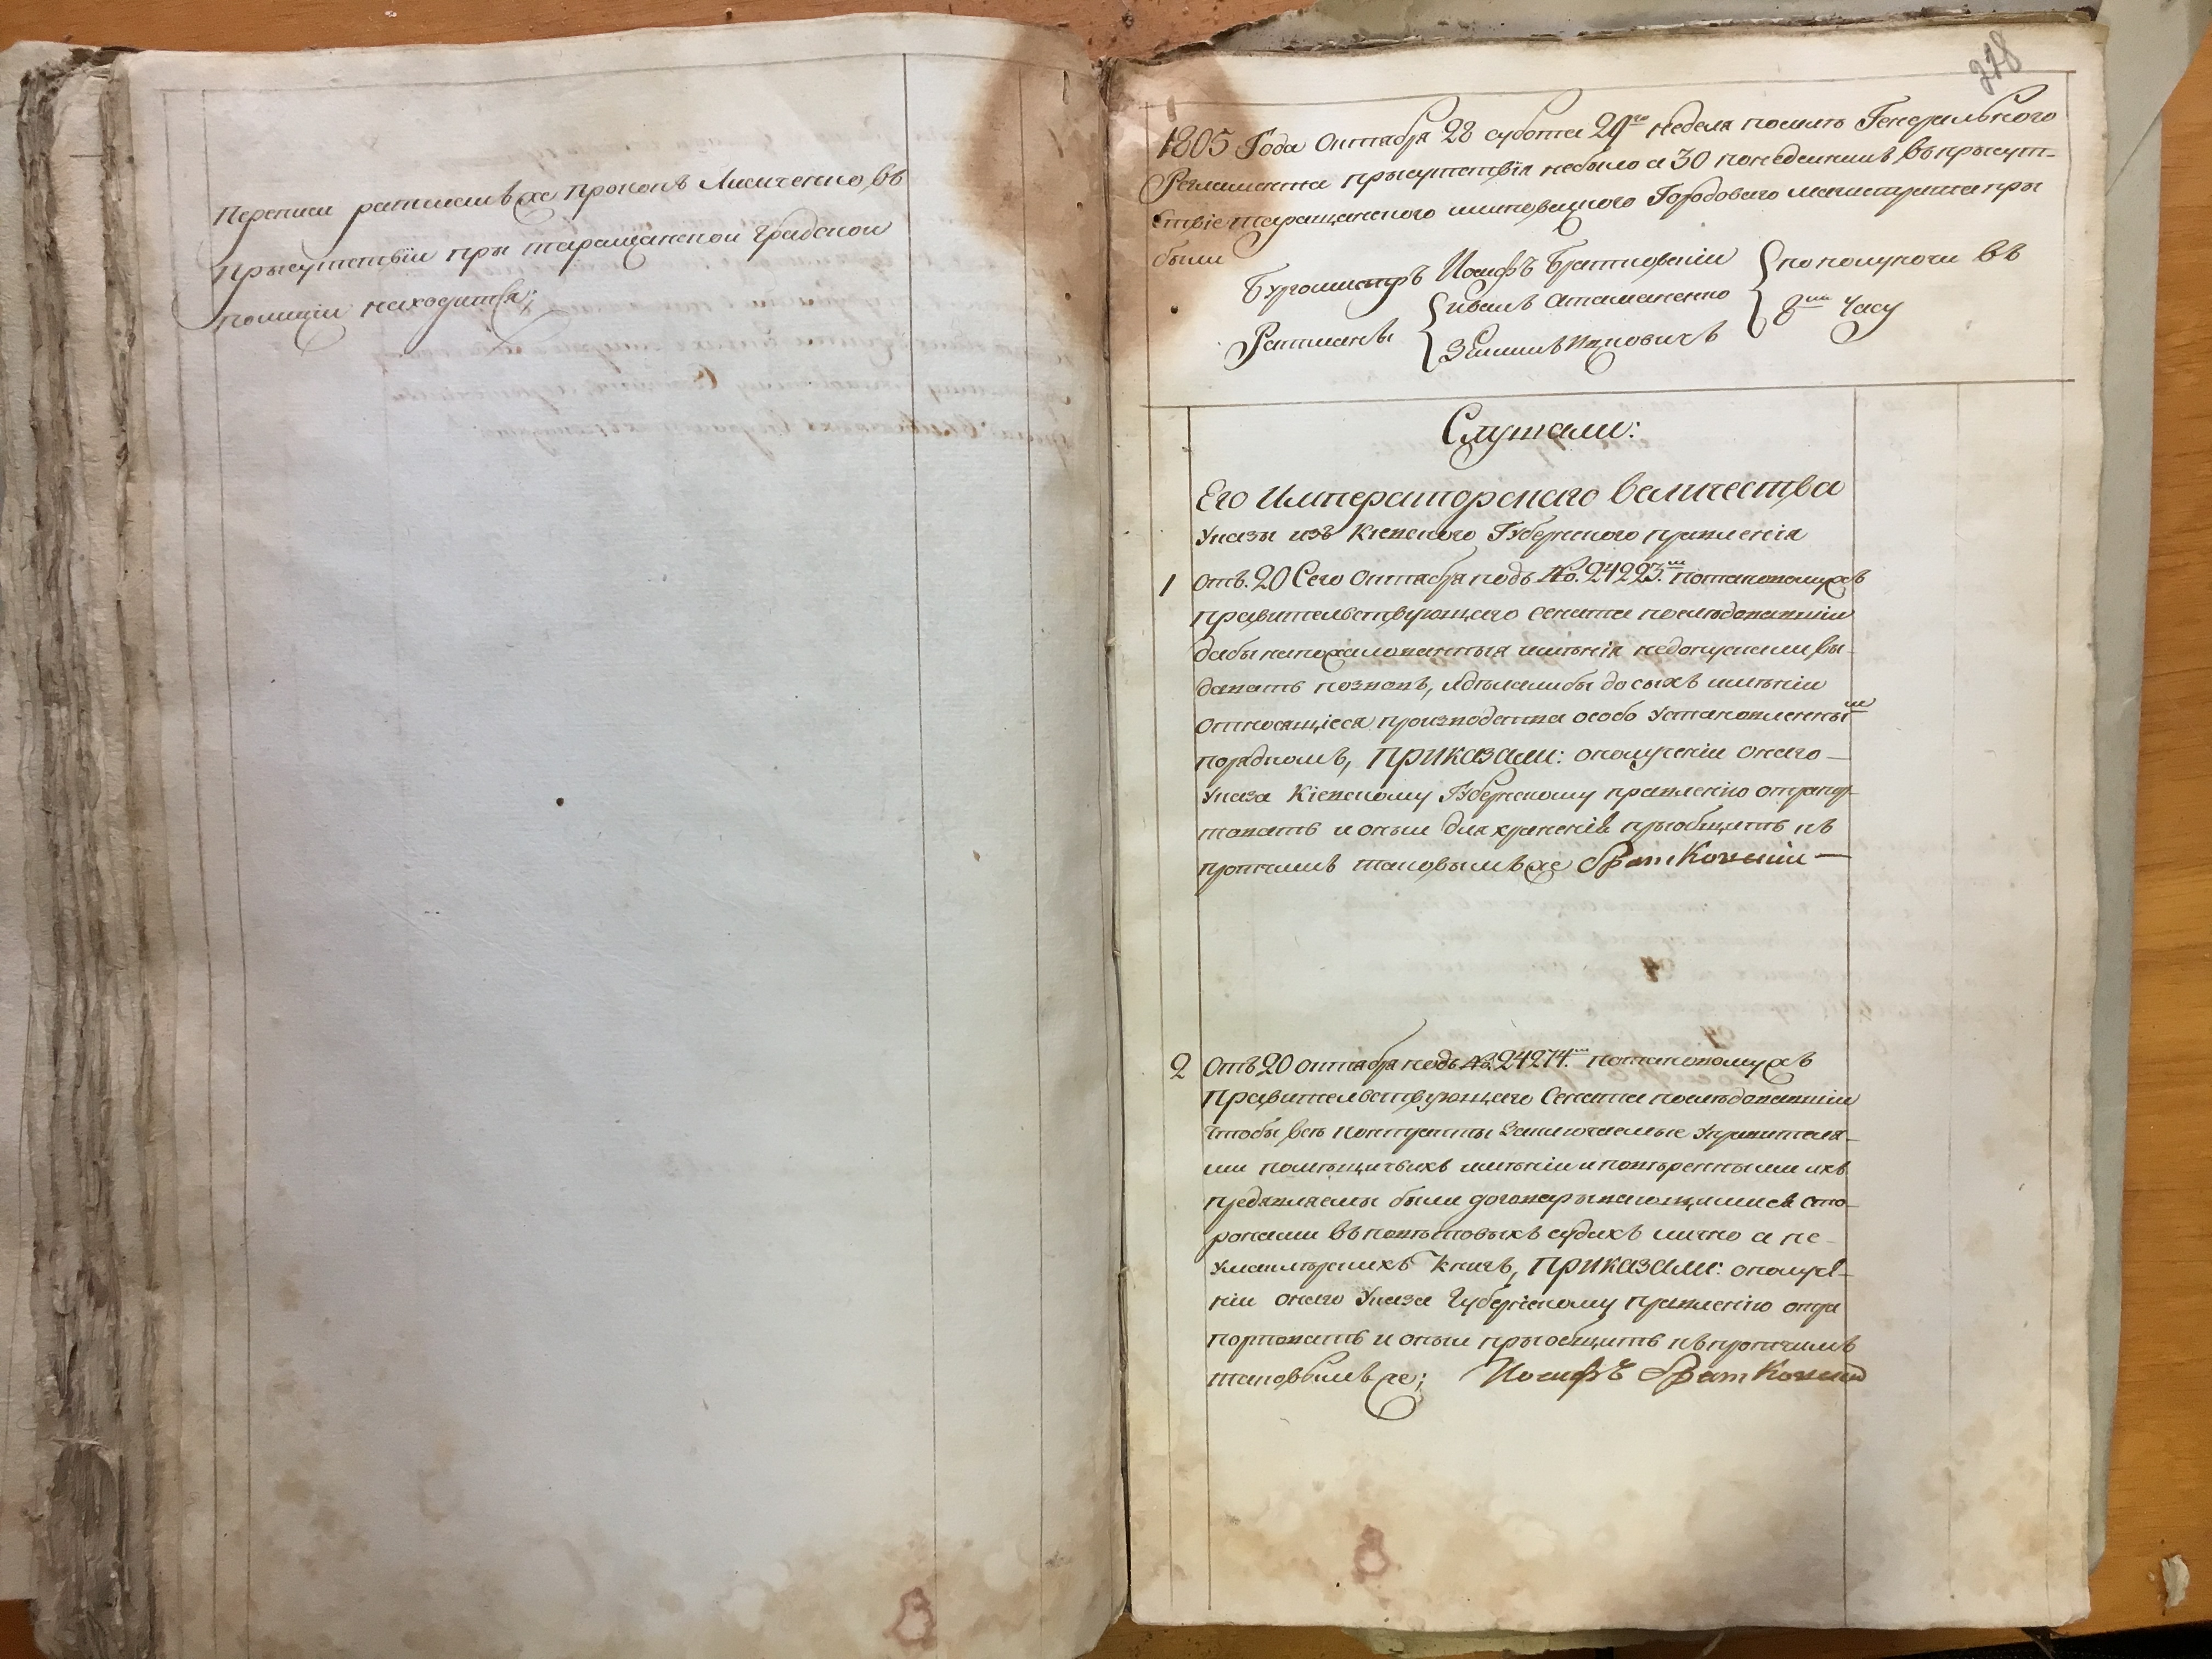 Перепси ратманъ же Прокопъ Лисиченко, въ
прысутствїи при таращанской градской
полицїи находится;
228
1805 Года Октабря 28 субота 29го неделя посилѣ Генерального
Регламента прысутствїя небыло а 30 понеделникъ въ прысут-
ствїе таращанского шиповецкого Городового магистрата пры
были
Бургомистръ Иосифъ Братковскїи
Ратманы
Иванъ Атаманенко
Ицковичъ
пополуночи въ
8мъ Часу
Слушали:
Его Императорскаго Величества
Указы изъ Кїевского Губернского правленїя
1 отъ 20 Сего Октабря подъ №. 24223.мъ потаковому жъ
правительствующего сената последовавшїи
дабы на пожалованныя имѣнїя недопускали вы-
давать позвовъ, и дѣла либы до сыхъ имѣнїи
относящїеся производства особо установленнымъ
порядкомъ, ПРИКАЗАЛИ: ополученїи онаго —
указа Кїевскому Губернскому правленїю отрапор-
товать и оныи для храненїя прыобщить къ
протчимъ таковымъ же Братковскїи —
2 Отъ 20 октабря подъ №. 24274.мъ потаковому жъ
Правительствующего Сената последовавшїи
чтобы все контракты заключаемые управителя-
ми помѣщичьихъ имѣнїи и повѣренными ихъ
предявляемы были договарывающимися сто-
ронами въ повѣтовыхъ судахъ лично а не
у маклѣрскихъ книгъ, ПРИКАЗАЛИ: ополуче-
нїи онаго Указа Губернскому правленїю отра
портовать и оныи прыобщить къ протчимъ
таковымъ же; Иосифъ Братковскїи